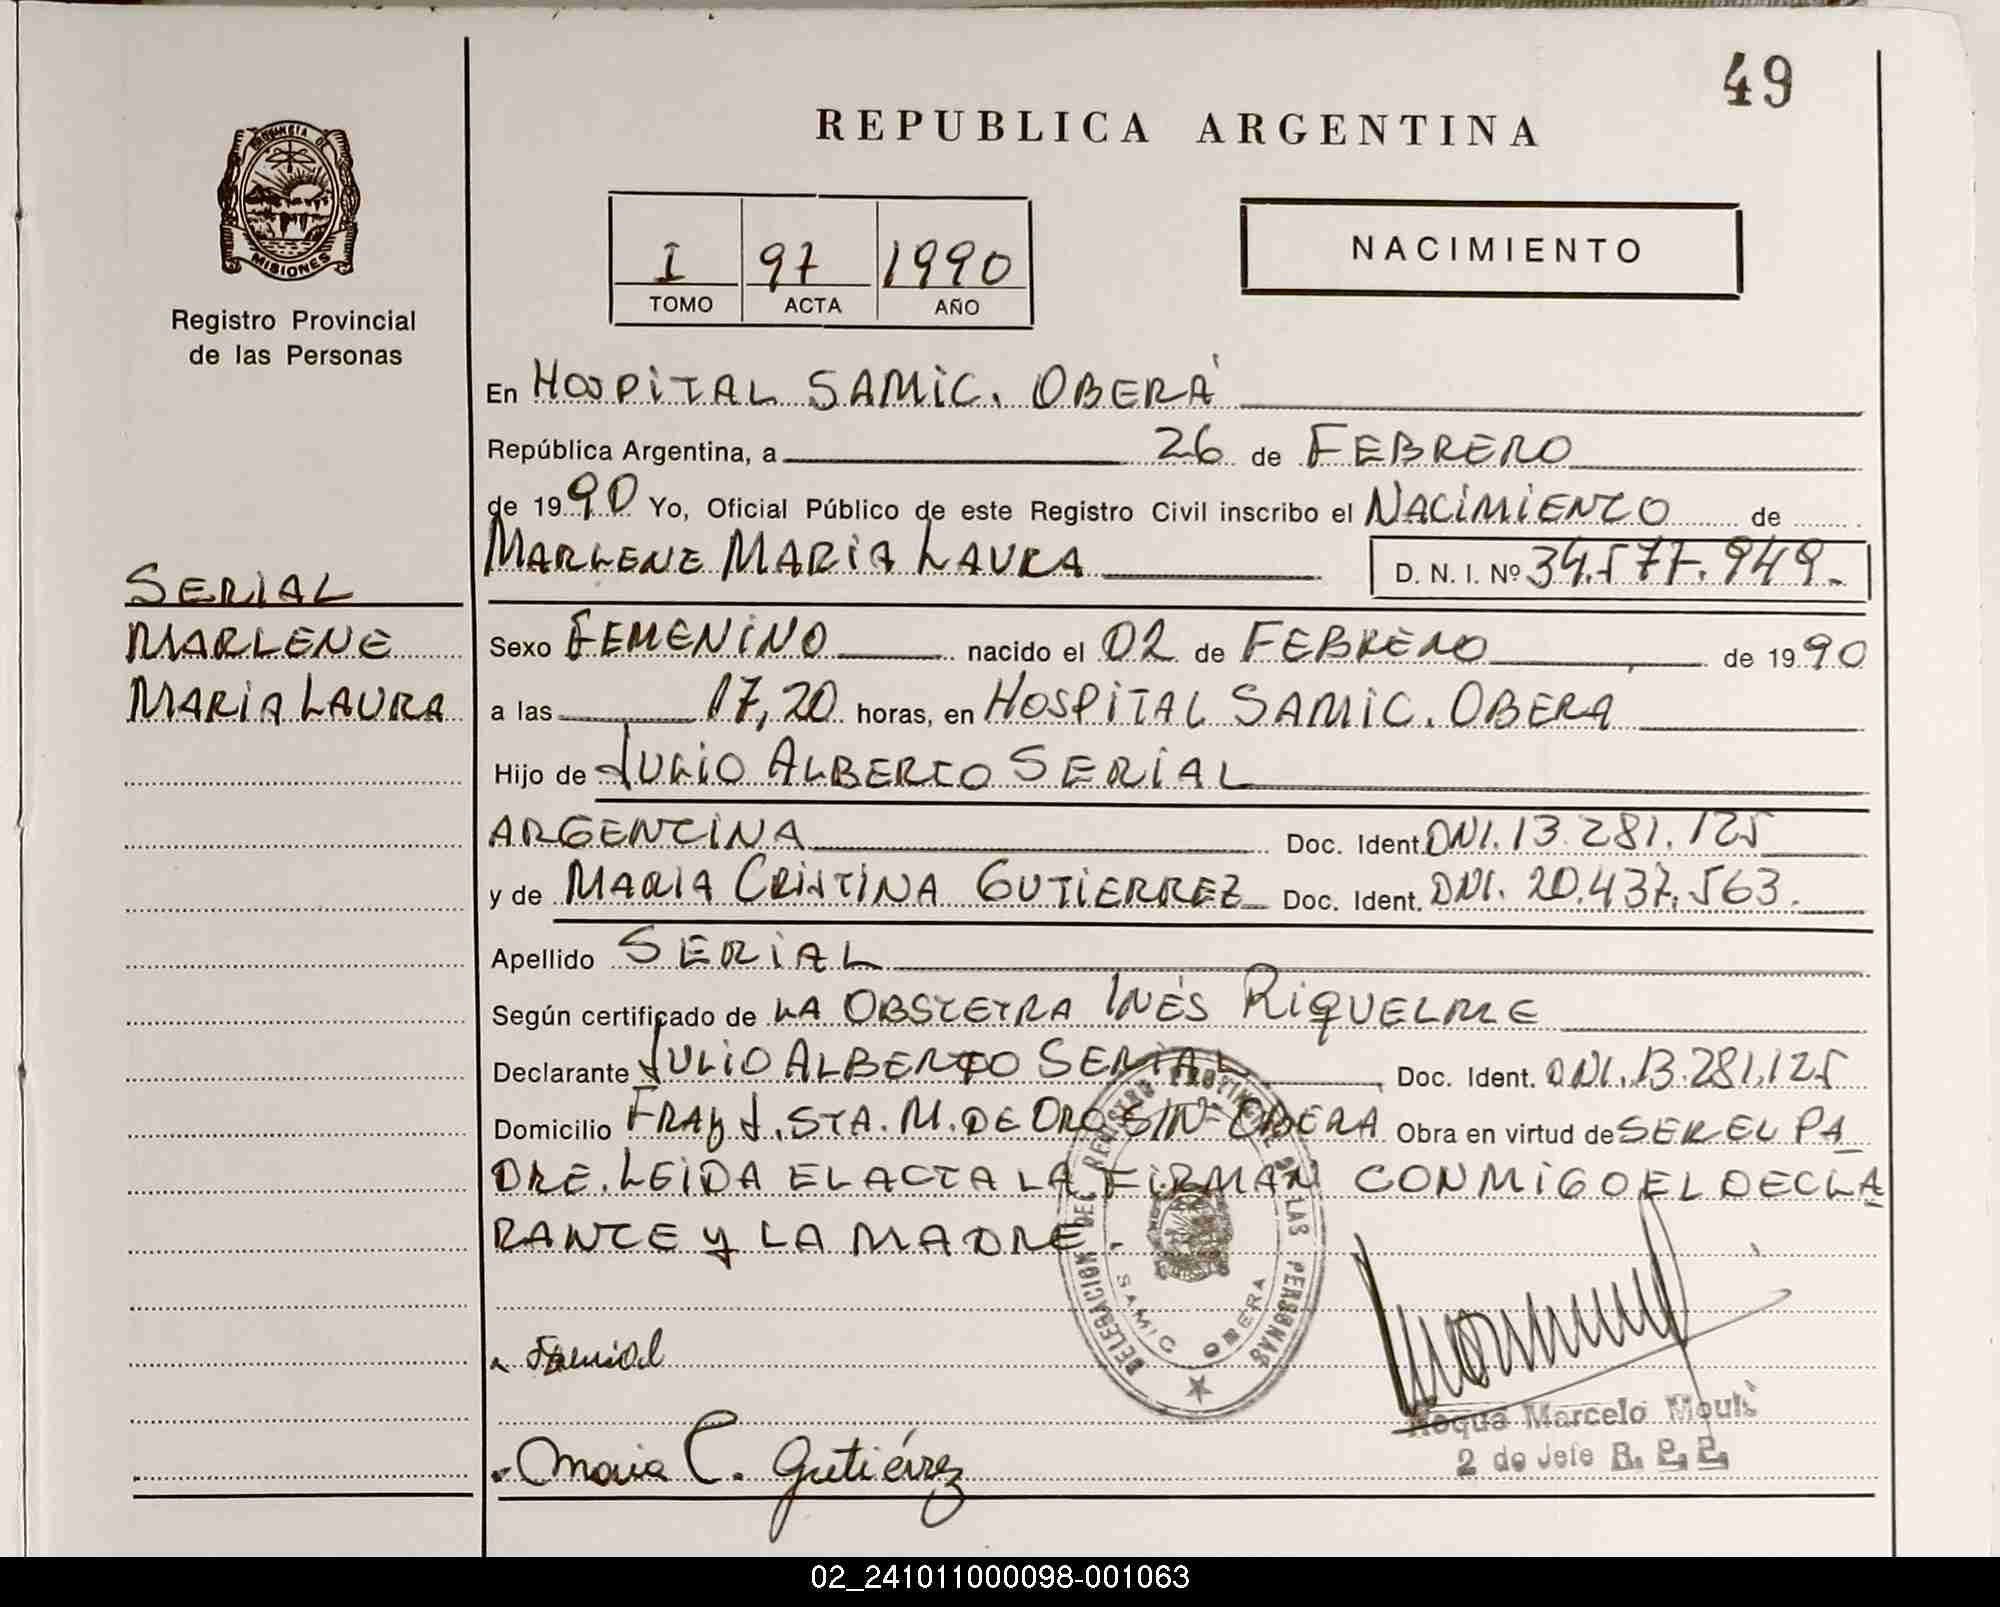 49
REPUBLICA ARGENTINA
PROVINCIA DE
MISIONES
Registro Provincial
de las Personas
I 97 1990
TOMO ACTA AÑO
NACIMIENTO
SERIAL
MARLENE
MARIA LAURA
En HOSPITAL SAMIC. OBERÁ
República Argentina, a 26 de FEBRERO
de 1990 Yo, Oficial Público de este Registro Civil inscribo el NACIMIENTO de
MARLENE MARIA LAURA D. N. I. Nº 34.577.949.
Sexo FEMENINO nacido el 02 de FEBRERO de 1990
a las 17,20 horas, en HOSPITAL SAMIC. OBERA
Hijo de JULIO ALBERTO SERIAL
ARGENTINA Doc. Ident. DNI. 13.281.125
y de MARIA CRISTINA GUTIERREZ Doc. Ident. DNI. 20.437.563.
Apellido SERIAL
Según certificado de LA OBSTETRA INÉS RIQUELME
Declarante JULIO ALBERTO SERIAL Doc. Ident. DNI. 13.281.125
Domicilio FRAY J. STA. M. DE ORO S/Nº OBERA Obra en virtud de SER EL PA
DRE. LEIDA EL ACTA LA FIRMAN CONMIGO EL DECLA
RANTE Y LA MADRE.
DELEGACION DEL REGISTRO PROVINCIAL DE LAS PERSONAS
SAMIC OBERA
Maria C. Gutiérrez
Marcelo
2 do Jefe R. P. P.
02_241011000098-001063